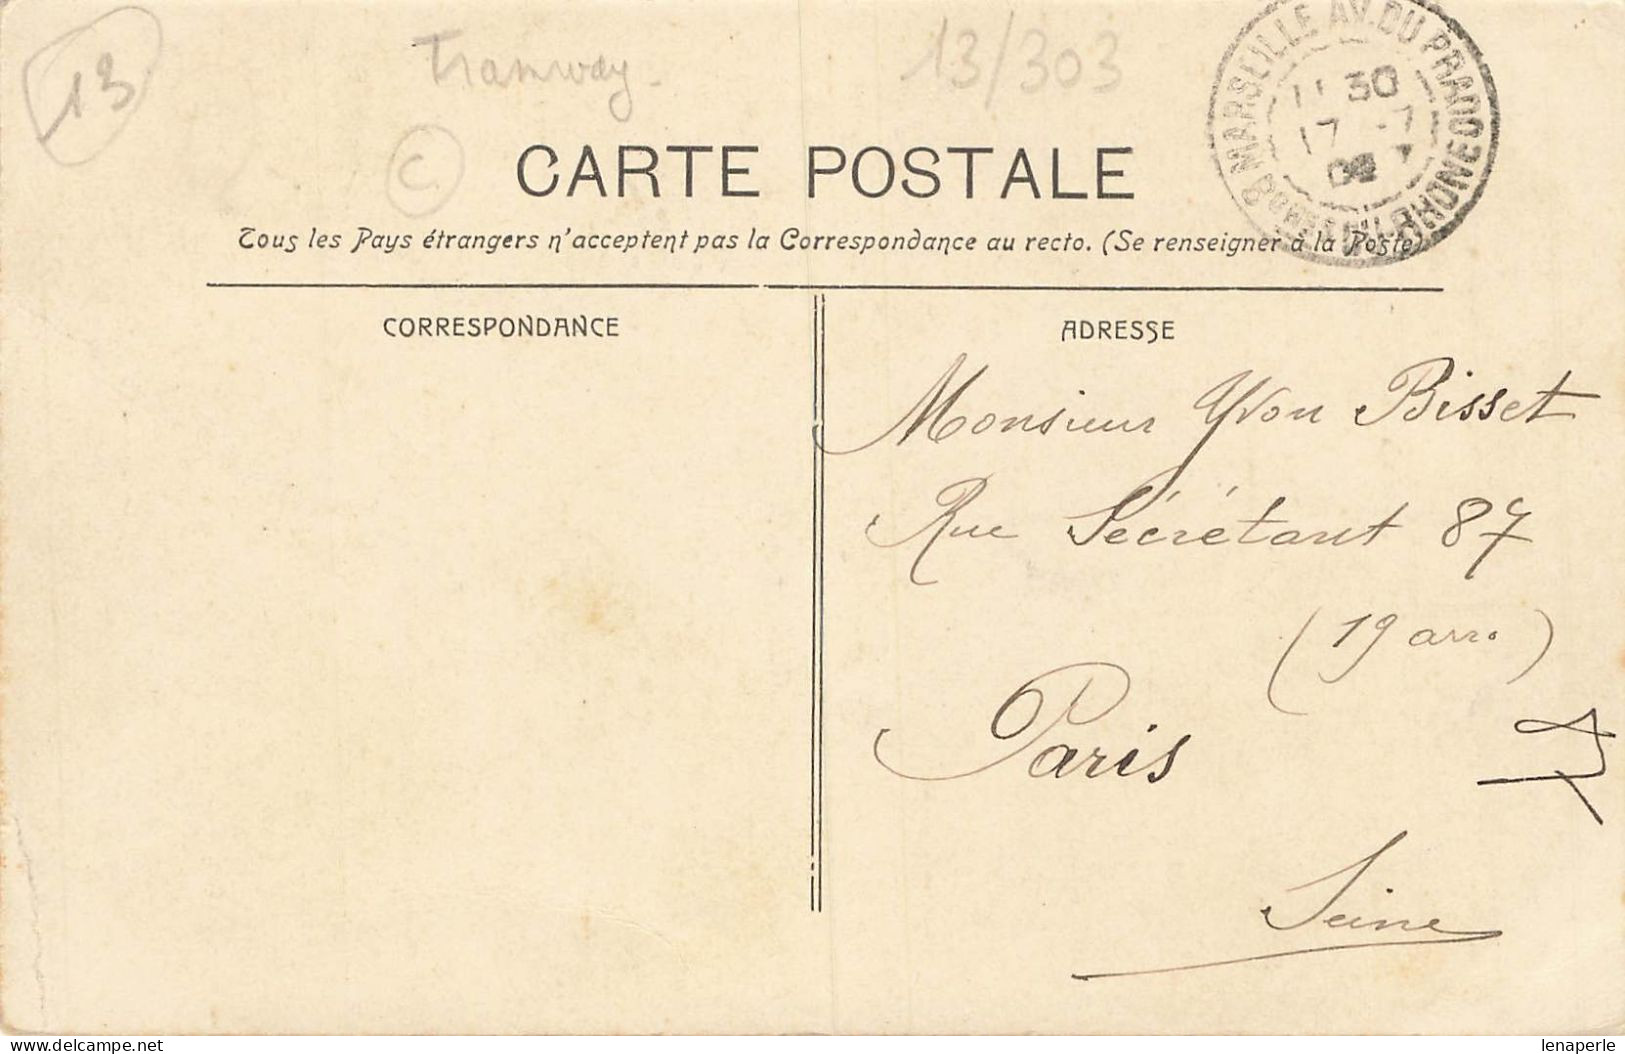 13
Tramway.
13/303
MARSEILLE AV. DU PRADO
11 30
17 -7
BOUCHES DU RHONE
C
CARTE POSTALE
Tous les Pays étrangers n'acceptent pas la Correspondance au recto. (Se renseigner à la Poste)
CORRESPONDANCE
ADRESSE
Monsieur Yvon Bisset
Rue Sécrétant 87
(19 arr.)
Paris
Seine
delcampe.net
lenaperle